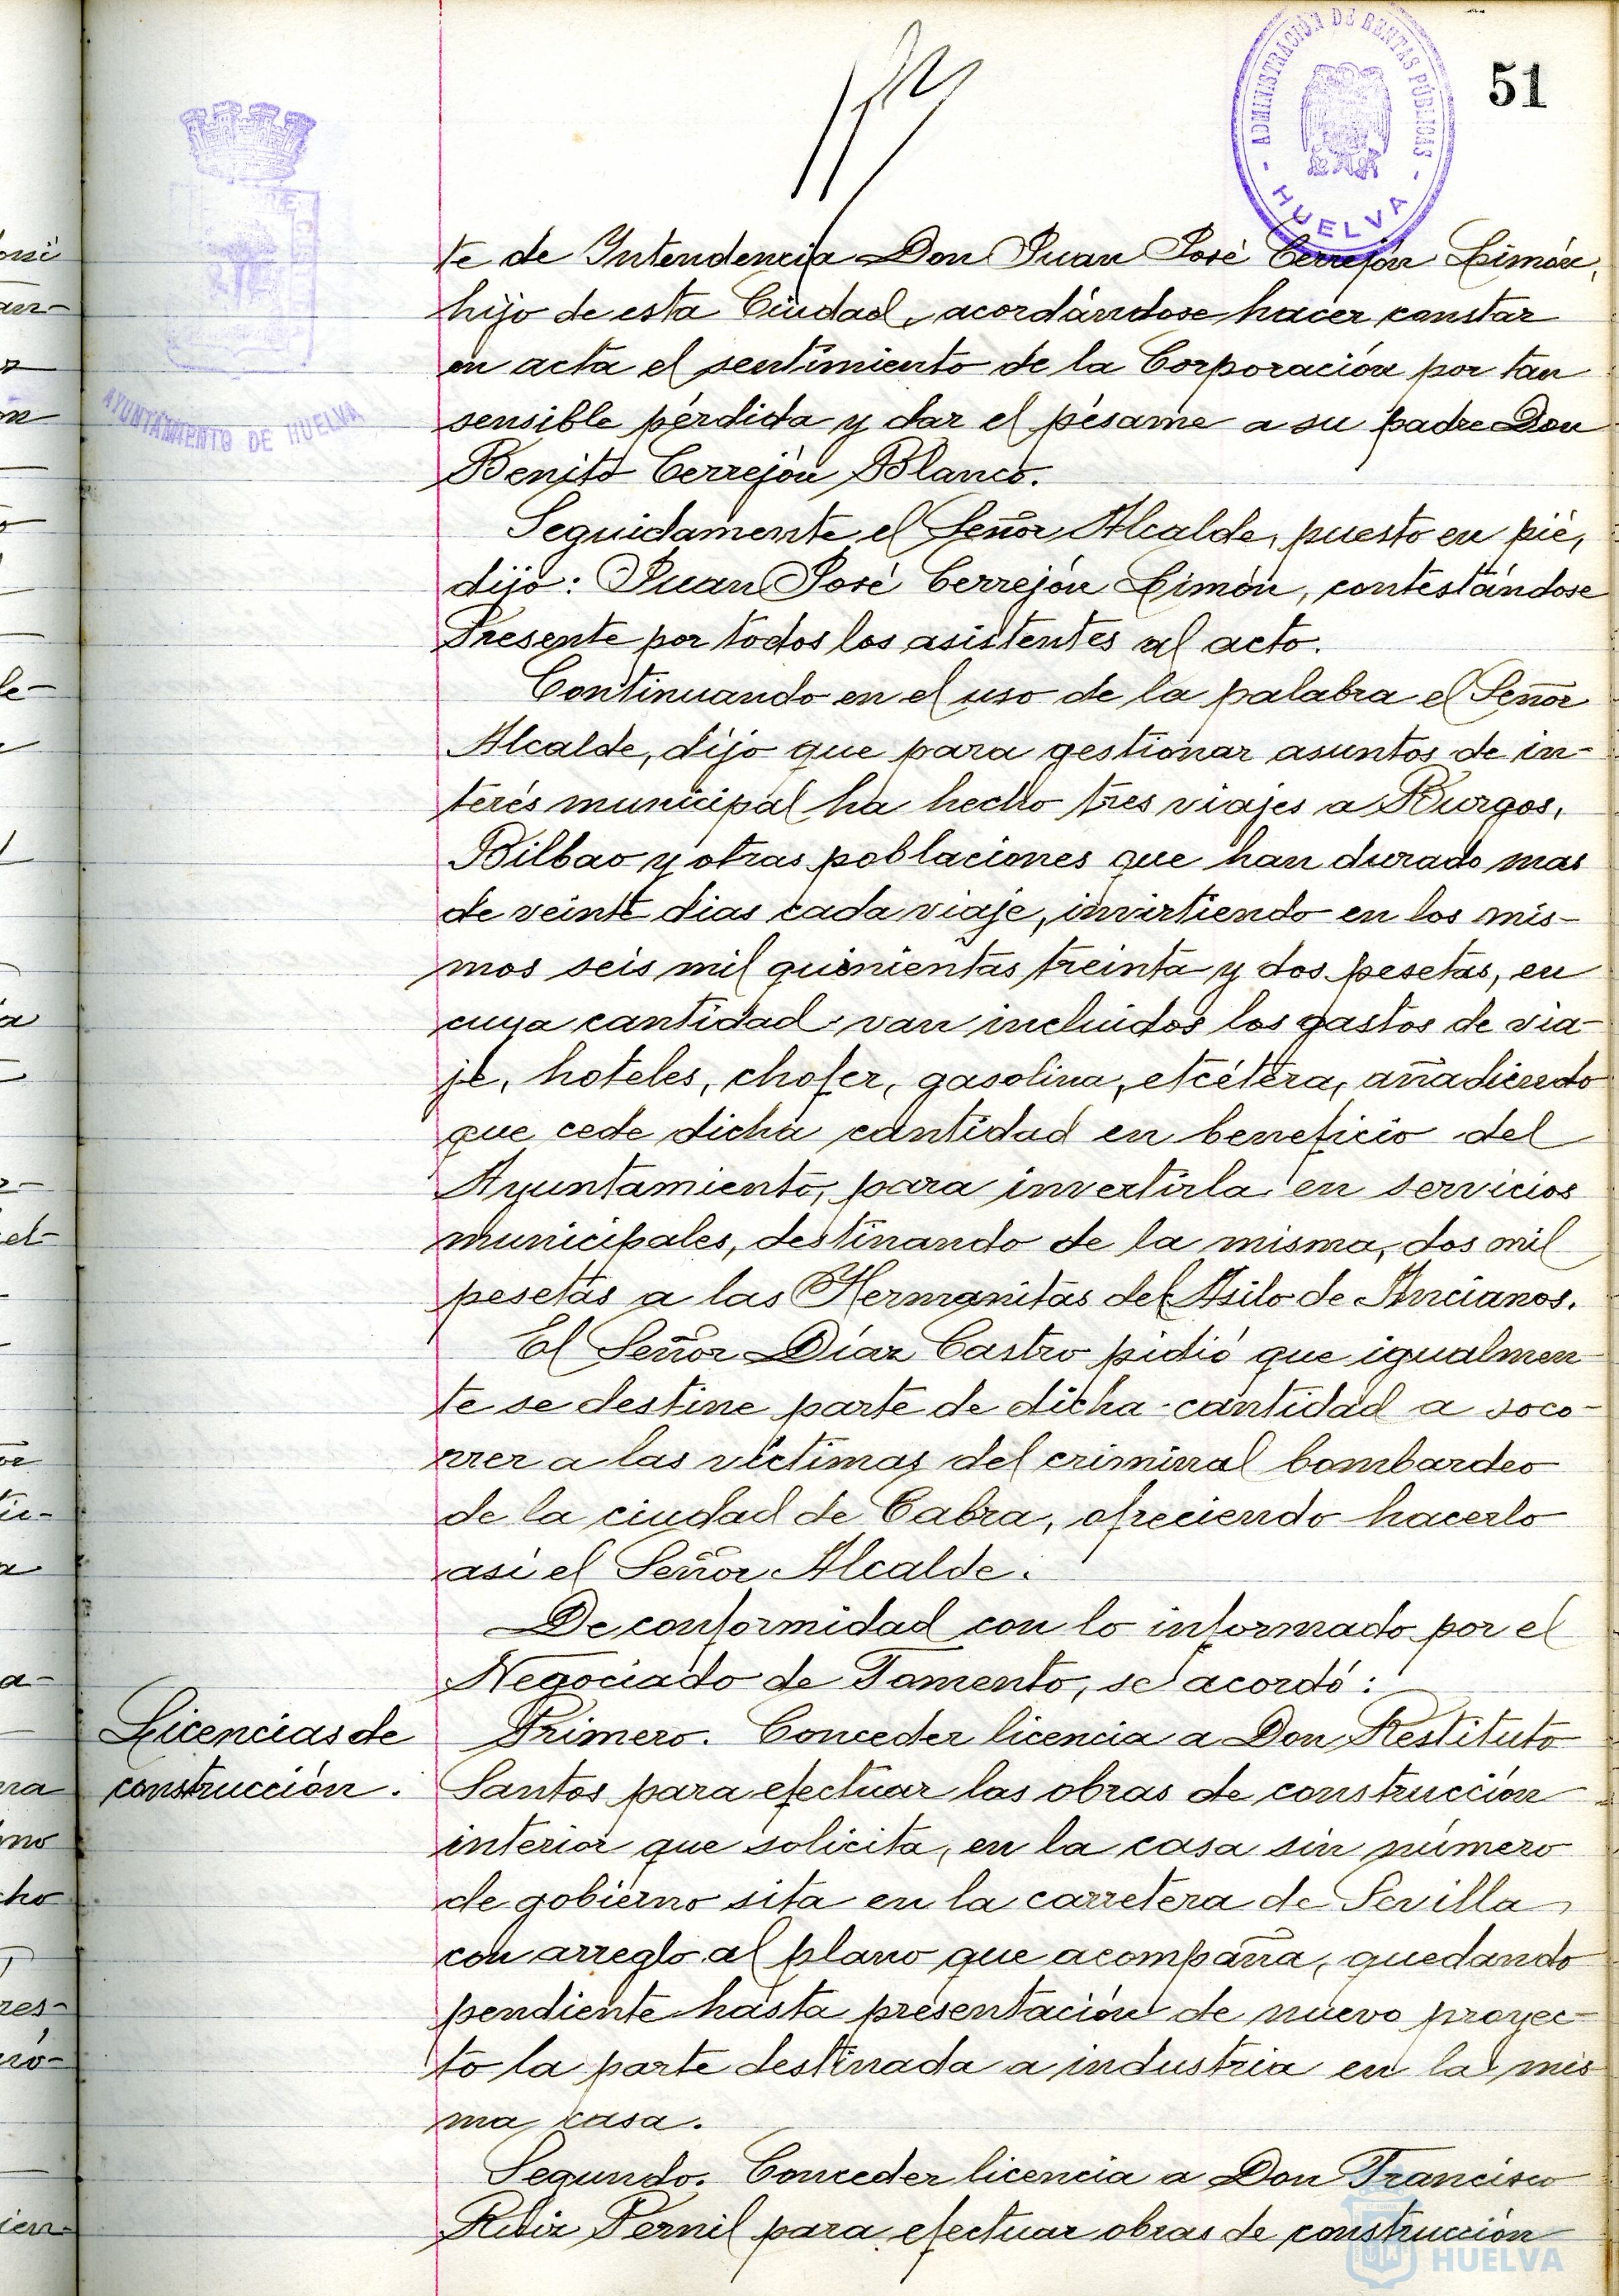 51
ADMINISTRACIÓN DE RENTAS PÚBLICAS
- HUELVA -
AYUNTAMIENTO DE HUELVA
te de Intendencia Don Juan José Cerrejón Limón,
hijo de esta Ciudad, acordándose hacer constar
en acta el sentimiento de la Corporación por tan
sensible pérdida y dar el pésame a su padre Don
Benito Cerrejón Blanco.
Seguidamente el Señor Alcalde, puesto en pié,
dijo: Juan José Cerrejón Limón, contestándose
Presente por todos los asistentes al acto.
Continuando en el uso de la palabra el Señor
Alcalde, dijo que para gestionar asuntos de in-
terés municipal ha hecho tres viajes a Burgos,
Bilbao y otras poblaciones que han durado mas
de veinte dias cada viaje, invirtiendo en los mis-
mos seis mil quinientas treinta y dos pesetas, en
cuya cantidad van incluidos los gastos de via-
je, hoteles, chofer, gasolina, etcétera, añadiendo
que cede dicha cantidad en beneficio del
Ayuntamiento, para invertirla en servicios
municipales, destinando de la misma, dos mil
pesetas a las Hermanitas del Asilo de Ancianos.
El Señor Díaz Castro pidió que igualmen-
te se destine parte de dicha cantidad a soco-
rrer a las víctimas del criminal bombardeo
de la ciudad de Cabra, ofreciendo hacerlo
asi el Señor Alcalde.
De conformidad con lo informado por el
Negociado de Fomento, se acordó:
Licencias de
construcción.
Primero. Conceder licencia a Don Restituto
Santos para efectuar las obras de construcción
interior que solicita, en la casa sin número
de gobierno sita en la carretera de Sevilla
con arreglo al plano que acompaña, quedando
pendiente hasta presentación de nuevo proyec-
to la parte destinada a industria en la mis-
ma casa.
Segundo. Conceder licencia a Don Francisco
Ruiz Pernil para efectuar obras de construcción
HUELVA